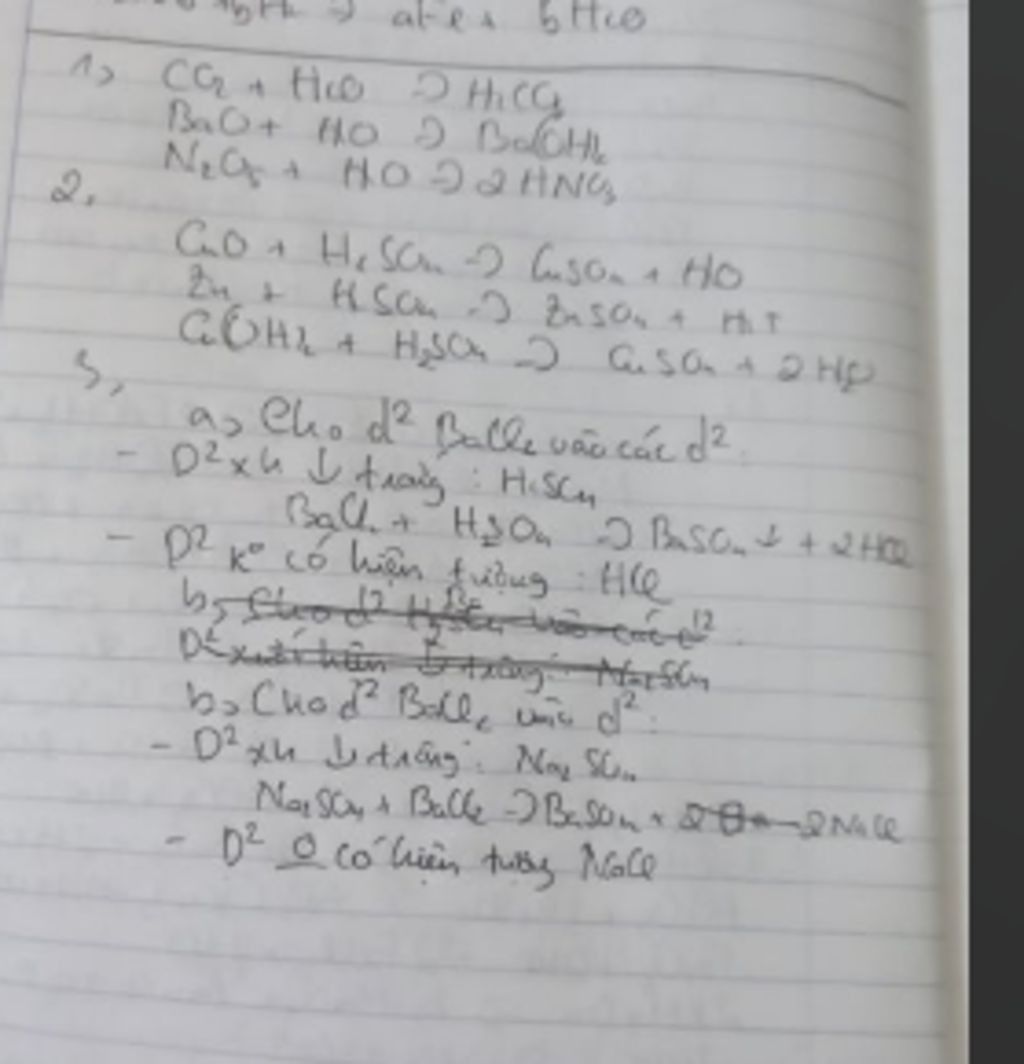 1, CO2 + H2O → H2CO3
BaO + H2O → Ba(OH)2
N2O5 + H2O → 2HNO3
2,
CuO + H2SO4 → CuSO4 + H2O
Zn + H2SO4 → ZnSO4 + H2↑
Cu(OH)2 + H2SO4 → CuSO4 + 2H2O
3,
a, Cho d² BaCl2 vào các d²:
- D² xh ↓ trắng: H2SO4
BaCl2 + H2SO4 → BaSO4↓ + 2HCl
- D² k° có hiện tượng: HCl
b, Cho d² vào các d²
D² xuất hiện ↓ trắng: Na2SO4
b, Cho d² BaCl2 vào d²:
- D² xh ↓ trắng: Na2SO4
Na2SO4 + BaCl2 → BaSO4 + 2NaCl
- D² 0 có hiện tượng NaCl